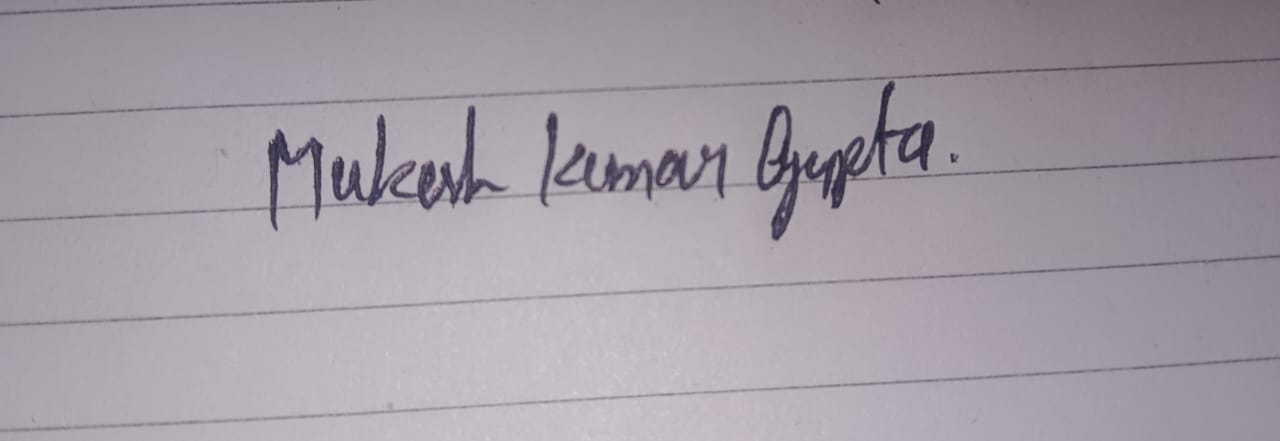 Mukesh Kumar Gupta.